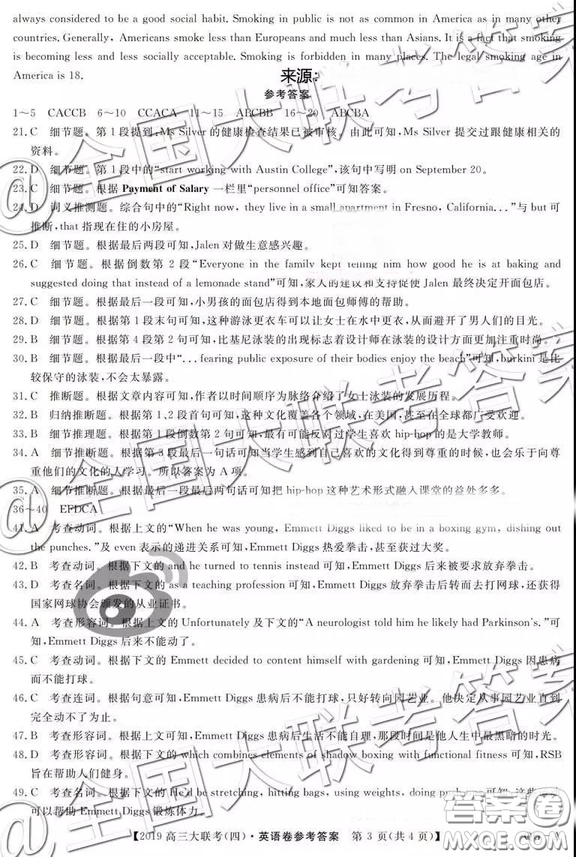 always considered to be a good social habit. Smoking in public is not as common in America as in many other
countries. Generally, Americans smoke less than Europeans and much less than Asians. It is a fact that smoking
is becoming less and less socially acceptable. Smoking is forbidden in many places. The legal smoking age in
America is 18.
来源:
参考答案
1～5 CACCB 6～10 CCACA 11～15 ABCBB 16～20 ABCBA
21. C 细节题。第1段提到,Ms Silver的健康检查结果已被审核。由此可知,Ms Silver提交过跟健康相关的
资料。
22. D 细节题。第1段中的“start working with Austin College”,该句中写明 on September 20。
23. C 细节题。根据 Payment of Salary 一栏里“personnel office”可知答案。
24. D 词义推测题。综合句中的“Right now, they live in a small apartment in Fresno, California...”与 but 可
推断,that 指现在住的小房屋。
25. D 细节题。根据最后两段可知,Jalen 对做生意感兴趣。
26. C 细节题。根据倒数第2段“Everyone in the family kept telling him how good he is at baking and
suggested doing that instead of a lemonade stand”可知,家人的建议和支持促使 Jalen 最终决定开面包店。
27. C 细节题。根据最后一段可知,小男孩的面包店得到本地面包师傅的帮助。
28. D 细节题。根据第1段末句可知,这种游泳更衣车可以让女士在水中更衣,从而避开了男人们的目光。
29. D 细节题。根据第4段第2句可知,比基尼泳装的出现标志着设计师开始在泳装的设计方面更加注重时尚。
30. B 细节题。根据最后一段中的“...fearing public exposure of their bodies enjoy the beach”可知,burkini 是比
较保守的泳装,不会太暴露。
31. C 推断题。根据文章内容可知,作者以时间顺序为脉络介绍了女士泳装的发展历程。
32. B 归纳推断题。根据第1、2段首句可知,这种文化覆盖各个领域,在美国,甚至在全球都广受欢迎。
33. B 细节推理题。根据第1段倒数第2句可知,最有可能反对过学生喜欢 hip-hop 的是大学教师。
34. A 细节推断题。根据第3段最后一句话可知当学生感到自己喜欢的文化得到尊重的时候,也会乐于向尊
重他们的文化的人学习。所以答案为A项。
35. A 细节推断题。根据最后一段最后两句话可知把 hip-hop 这种艺术形式融入课堂的益处多多。
36～40 EFDCA
41. A 考查动词。根据上文的“When he was young, Emmett Diggs liked to be in a boxing gym, dishing out
the punches.”及 even 表示的递进关系可知,Emmett Diggs 热爱拳击,甚至获过大奖。
42. B 考查动词。根据下文的 and he turned to tennis instead 可知,Emmett Diggs 后来被要求放弃拳击。
43. D 考查名词。根据下文的 as a teaching profession 可知,Emmett Diggs 放弃拳击后转而去打网球,还获得
国家网球协会颁发的从业证书。
44. A 考查形容词。根据上文的 Unfortunately 及下文的“A neurologist told him he likely had Parkinson's.”可
知,Emmett Diggs 后来不能动了。
45. C 考查动词。根据下文的 Emmett decided to content himself with gardening 可知,Emmett Diggs 因患病
而不能打球。
46. C 考查连词。根据句意可知,Emmett Diggs 患病后不能打球,只好转向园艺业。他决定从事园艺业直到
完全动不了为止。
47. B 考查形容词。根据上文可知,Emmett Diggs 患病后生活不能自理,那段时间是他人生中最黑暗的时光。
48. B 考查形容词。根据下文的 which combines elements of shadow boxing with functional fitness 可知,RSB
旨在帮助人们健身。
49. C 考查动词。根据下文的 He'd be stretching, hitting, carrying and doing boxing footwork 可知,
Emmett Diggs 锻炼体力。
【2019 高三大联考(四)·英语卷参考答案 第3页(共4页)】
@全国大联考答案
答案圈